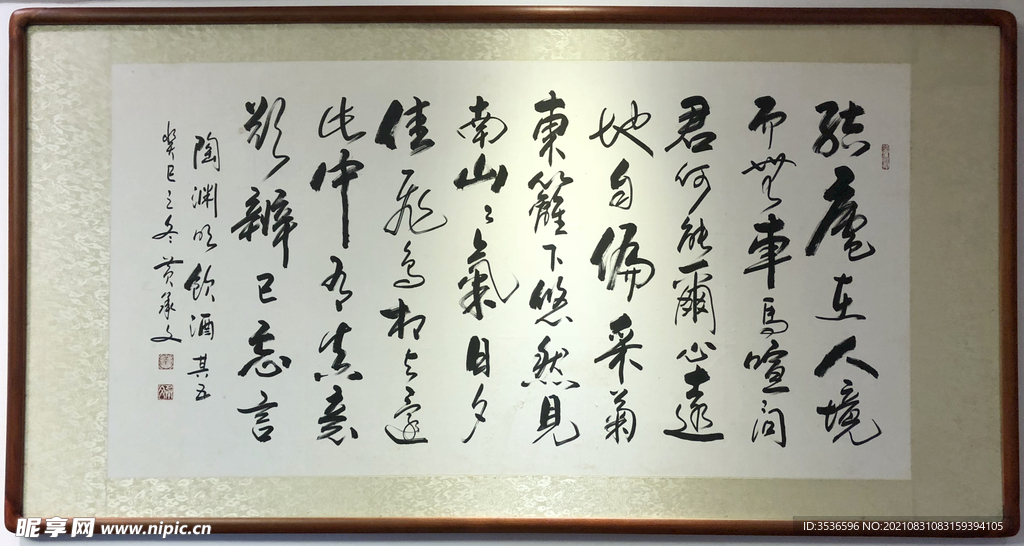 結廬在人境
而無車馬喧問
君何能爾心遠
地自偏采菊
東籬下悠然見
南山〻氣日夕
佳飛鳥相與還
此中有真意
欲辨已忘言
陶渊明飲酒其五
癸巳之冬黄承文
昵享网 www.nipic.cn
ID:3536596 NO:20210831083159394105